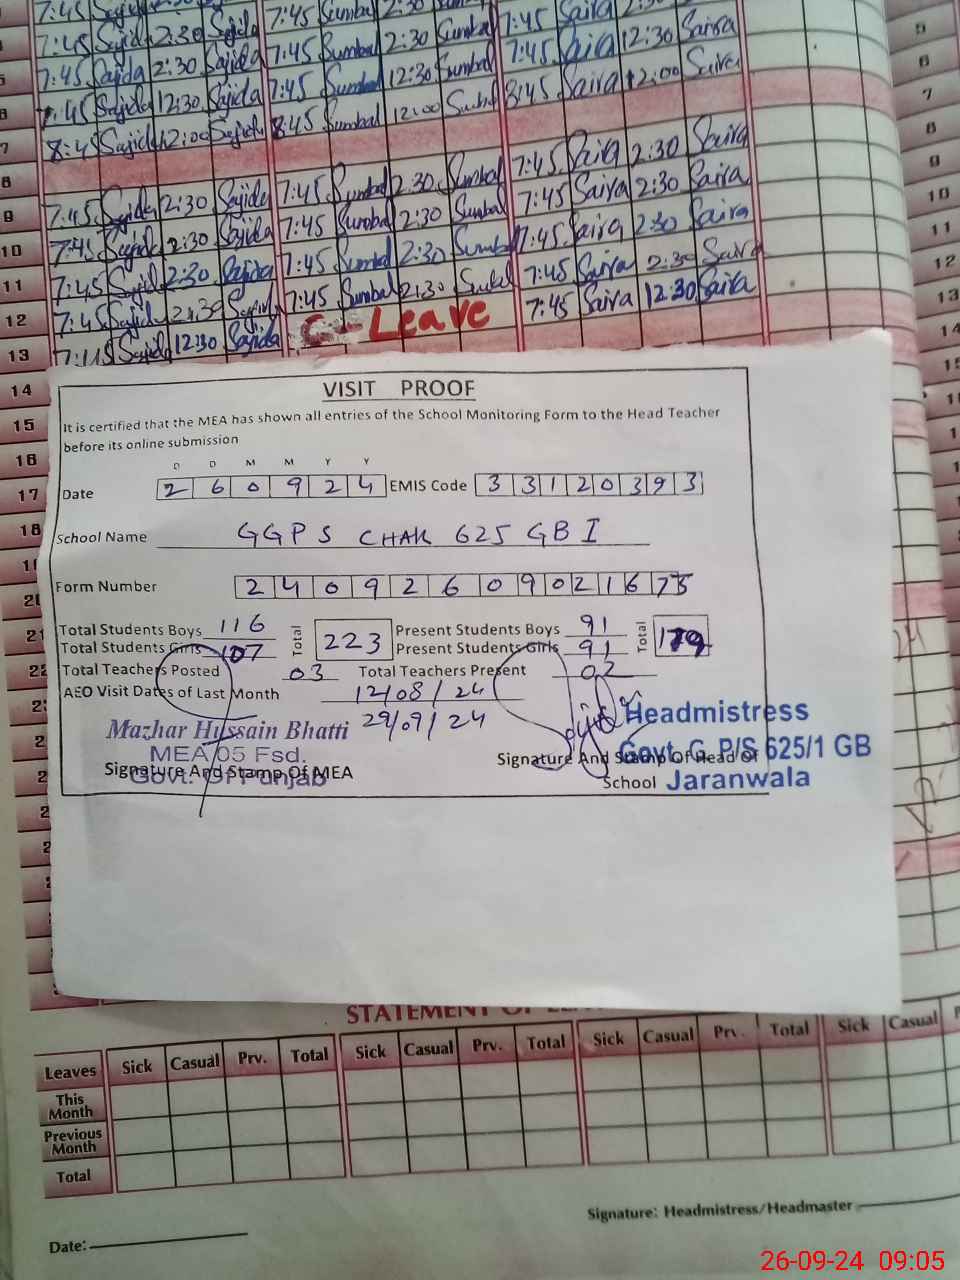 7:45 Sumbal 2:30 Sumbal 7:45 Saira
7:45 Sajida 2:30 Sajida 7:45 Sumbal 2:30 Sumbal 7:45 Saira 12:30 Saira
7:45 Sajida 2:30 Sajida 7:45 Sumbal 12:30 Sumbal
7:45 Sajida 12:30 Sajida 8:45 Sumbal 12:00 8:45 Saira 12:00 Saira
8:45 Sajida 12:00 Sajida
7:45 Sajida 2:30 Sajida 7:45 Sumbal 2:30 Sumbal 7:45 Saira 2:30 Saira
7:45 Sajida 2:30 Sajida 7:45 Sumbal 2:30 Sumbal 7:45 Saira 2:30 Saira
7:45 Sajida 2:30 Sajida 7:45 Sumbal 2:30 Sumbal 7:45 Saira 2:30 Saira
7:45 Sajida 2:30 Sajida 7:45 Sumbal 2:30 7:45 Saira 2:30 Saira
Sajida 12:30 Sajida C-Leave 7:45 Saira 12:30 Saira
VISIT PROOF
It is certified that the MEA has shown all entries of the School Monitoring Form to the Head Teacher
before its online submission
D D M M Y Y
Date 2 6 0 9 2 4 EMIS Code 3 3 1 2 0 3 9 3
School Name GGPS CHAK 625 GB I
Form Number 2 4 0 9 2 6 0 9 0 2 1 6 7 5
Total Students Boys 116 Total 223 Present Students Boys 91 Total 179
Total Students Girls 107 Present Students Girls 91
Total Teachers Posted 03 Total Teachers Present 02
AEO Visit Dates of Last Month 12/08/24
29/09/24
Mazhar Hussain Bhatti
MEA 05 Fsd.
Govt. Of Punjab
Signature And Stamp Of MEA
Headmistress
Govt. G. P/S 625/1 GB
Jaranwala
Signature And Stamp Of Head Of
School
STATEMENT OF
Leaves Sick Casual Prv. Total Sick Casual Prv. Total Sick Casual Prv. Total Sick Casual
This Month
Previous Month
Total
Signature: Headmistress/Headmaster
Date:
26-09-24 09:05